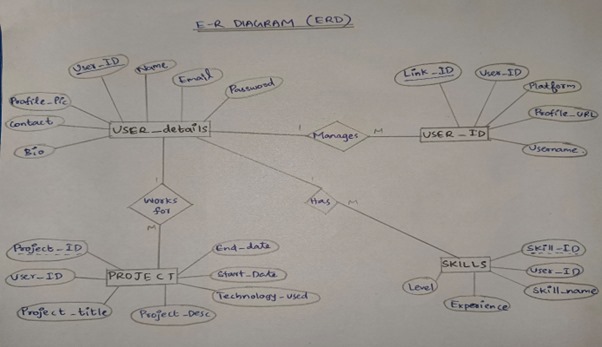 E-R DIAGRAM (ERD)
User_ID
Name
Email
Password
Profile_Pic
Contact
Bio
USER_details
1
Manages
M
Link_ID
User_ID
Platform
Profile_URL
Username
USER_ID
1
Works
for
M
1
Has
M
Project_ID
User_ID
Project_title
PROJECT
End_date
Start_Date
Technology_used
Project_Desc
SKILLS
Skill_ID
User_ID
Skill_name
Level
Experience